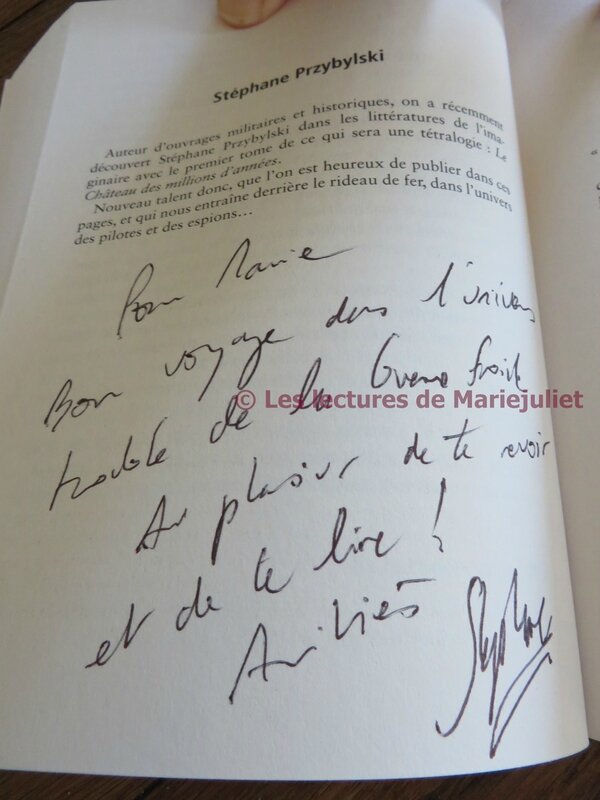 Stéphane Przybylski
Auteur d'ouvrages militaires et historiques, on a récemment
découvert Stéphane Przybylski dans les littératures de l'ima-
ginaire avec le premier tome de ce qui sera une tétralogie : Le
Château des millions d'années.
Nouveau talent donc, que l'on est heureux de publier dans ces
pages, et qui nous entraîne derrière le rideau de fer, dans l'univers
des pilotes et des espions…
Pour Marie
Bon voyage dans l'univers
trouble de la Guerre froide
© Les lectures de Mariejuliet
Au plaisir de te revoir
et de te lire !
Amitiés
Stéphane